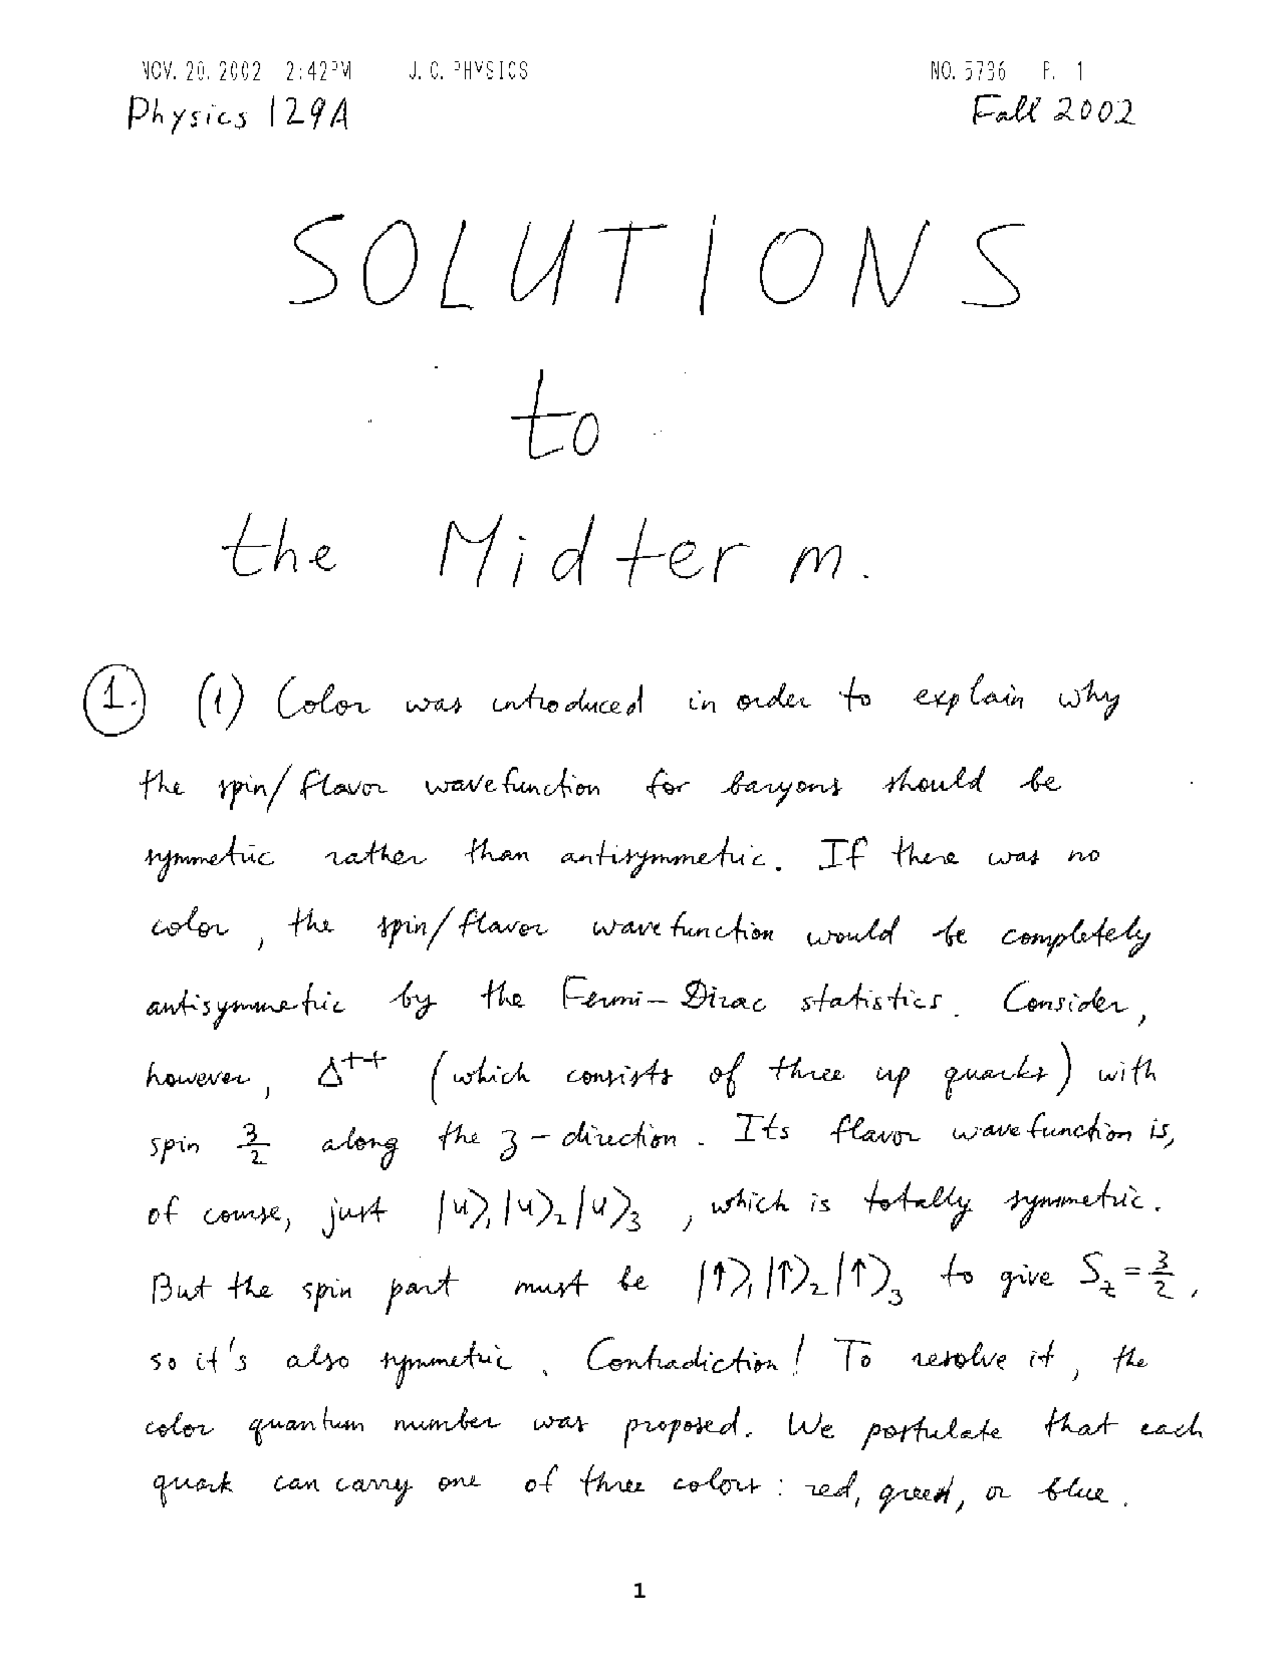 NOV. 20. 2002 2:42PM J. C. PHYSICS NO. 5736 P. 1
Physics 129A Fall 2002
SOLUTIONS
to
the Midterm.
1. (1) Color was introduced in order to explain why
the spin/flavor wavefunction for baryons should be
symmetric rather than antisymmetric. If there was no
color, the spin/flavor wavefunction would be completely
antisymmetric by the Fermi-Dirac statistics. Consider,
however, Δ⁺⁺ (which consists of three up quarks) with
spin 3/2 along the z-direction. Its flavor wavefunction is,
of course, just |u⟩₁|u⟩₂|u⟩₃, which is totally symmetric.
But the spin part must be |↑⟩₁|↑⟩₂|↑⟩₃ to give S_z = 3/2,
so it's also symmetric. Contradiction! To resolve it, the
color quantum number was proposed. We postulate that each
quark can carry one of three colors: red, green, or blue.
1